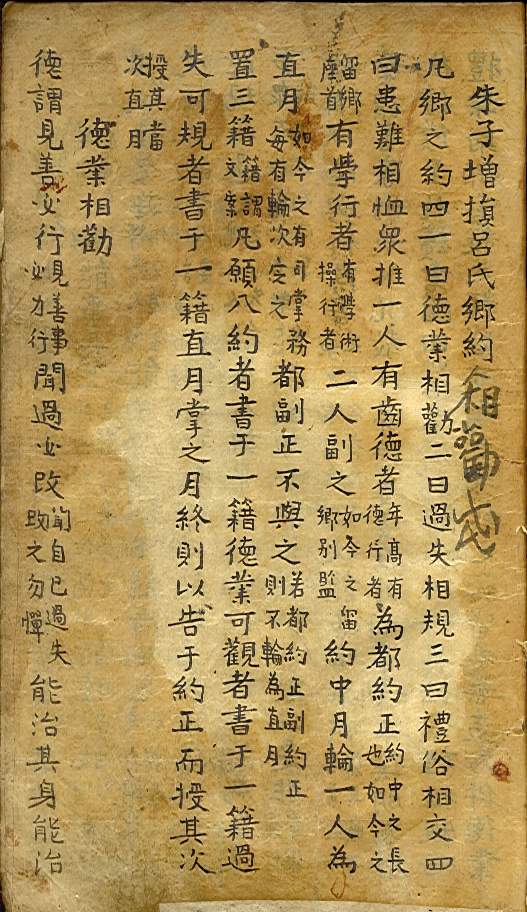 朱子增損呂氏鄉約 相勸
凡鄉之約四一曰德業相勸二曰過失相規三曰禮俗相交四
曰患難相恤眾推一人有齒德者年高有德行者為都約正約中之長也如今之
留鄉座首有學行者有學術操行者二人副之如今之留鄉別監約中月輪一人為
直月如今之有司掌務每有輪次定之都副正不與之若都約正副約正則不輪為直月
置三籍籍謂文案凡願入約者書于一籍德業可觀者書于一籍過
失可規者書于一籍直月掌之月終則以告于約正而授其次
授其當次直月
德業相勸
德謂見善必行見善事必力行聞過必改聞自己過失改之勿憚能治其身能治